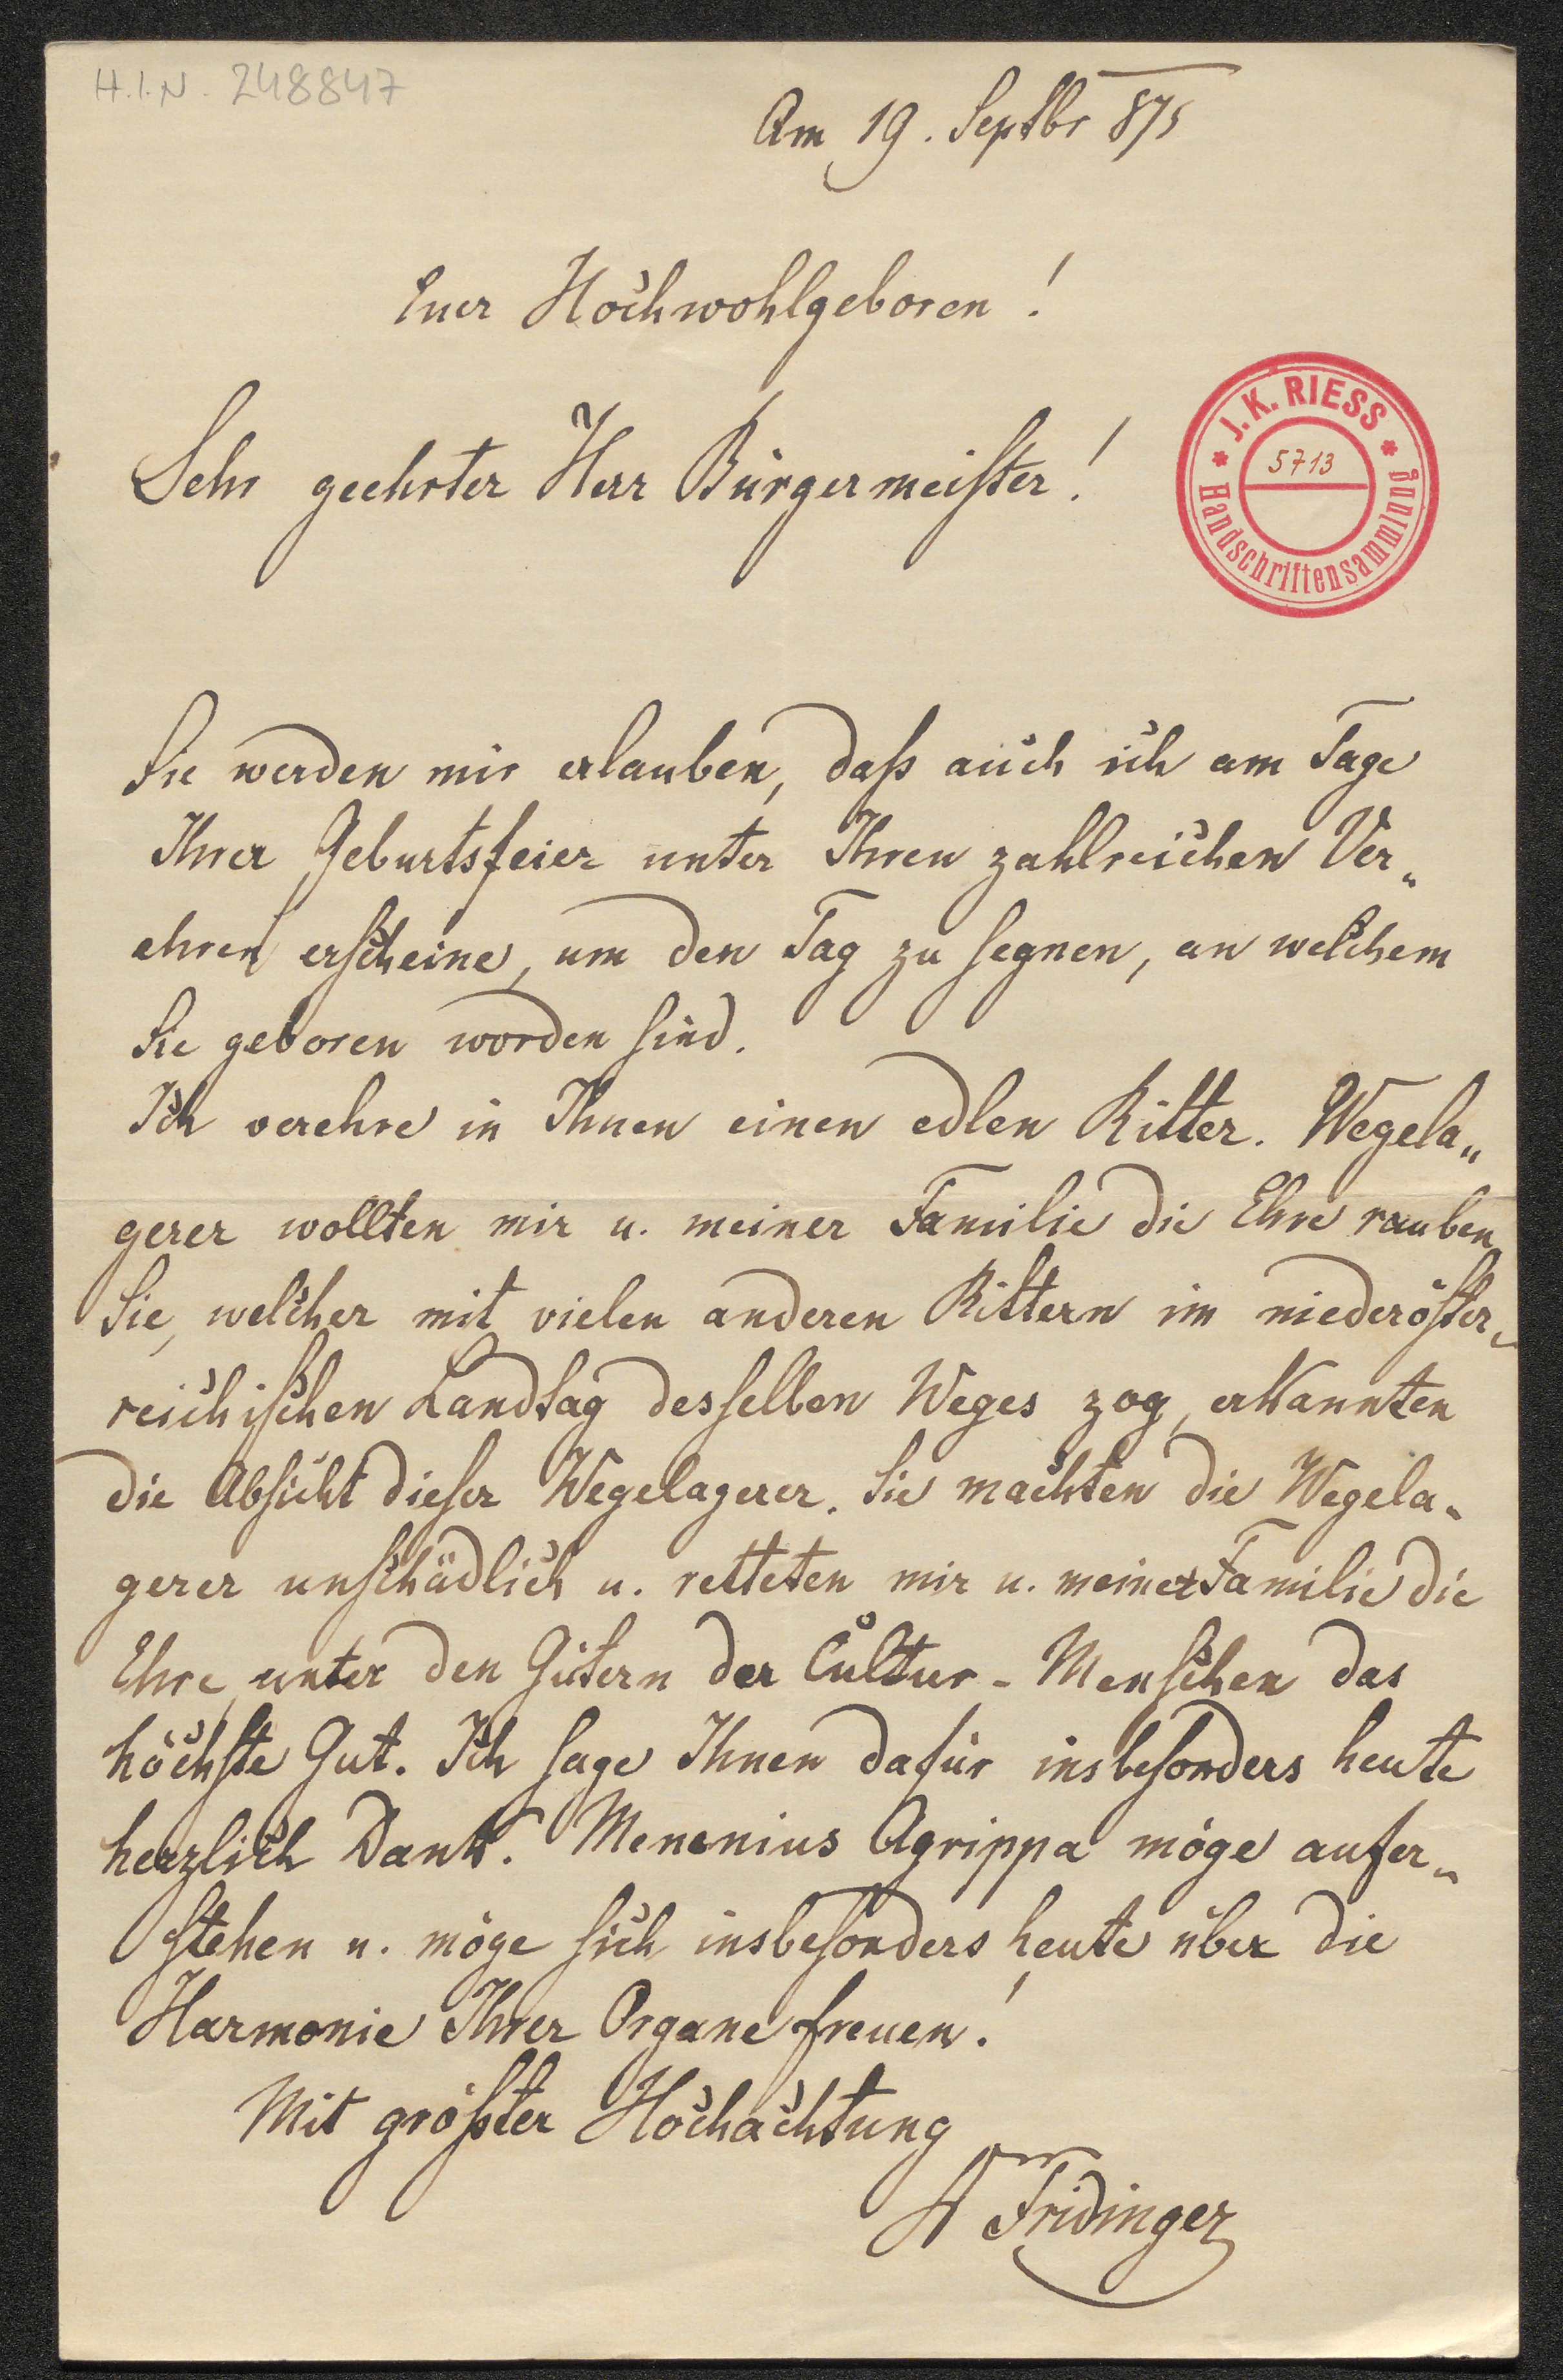 H.I.N. 248847
Am 19. Septbr 875
Euer Hochwohlgeboren!
J. K. RIESS
5713
Handschriftensammlung
Sehr geehrter Herr Bürgermeister!
Sie werden mir erlauben, daß auch ich am Tage
Ihrer Geburtsfeier unter Ihren zahlreichen Ver„
ehren erscheine, um den Tag zu segnen, an welchem
Sie geboren worden sind.
Ich verehre in Ihnen einen edlen Ritter. Wegela„
gerer wollten mir u. meiner Familie die Ehre rauben,
Sie, welcher mit vielen anderen Rittern im niederöster„
reichischen Landtag desselben Weges zog, erkannten
die Absicht dieser Wegelagerer. Sie machten die Wegela„
gerer unschädlich u. retteten mir u. meiner Familie die
Ehre, unter den Gütern der Cultur-Menschen das
höchste Gut. Ich sage Ihnen dafür insbesonders heute
herzlich Dank. Menenius Agrippa möge aufer„
stehen u. möge sich insbesonders heute über die
Harmonie Ihrer Organe freuen!
Mit größter Hochachtung
Fridinger